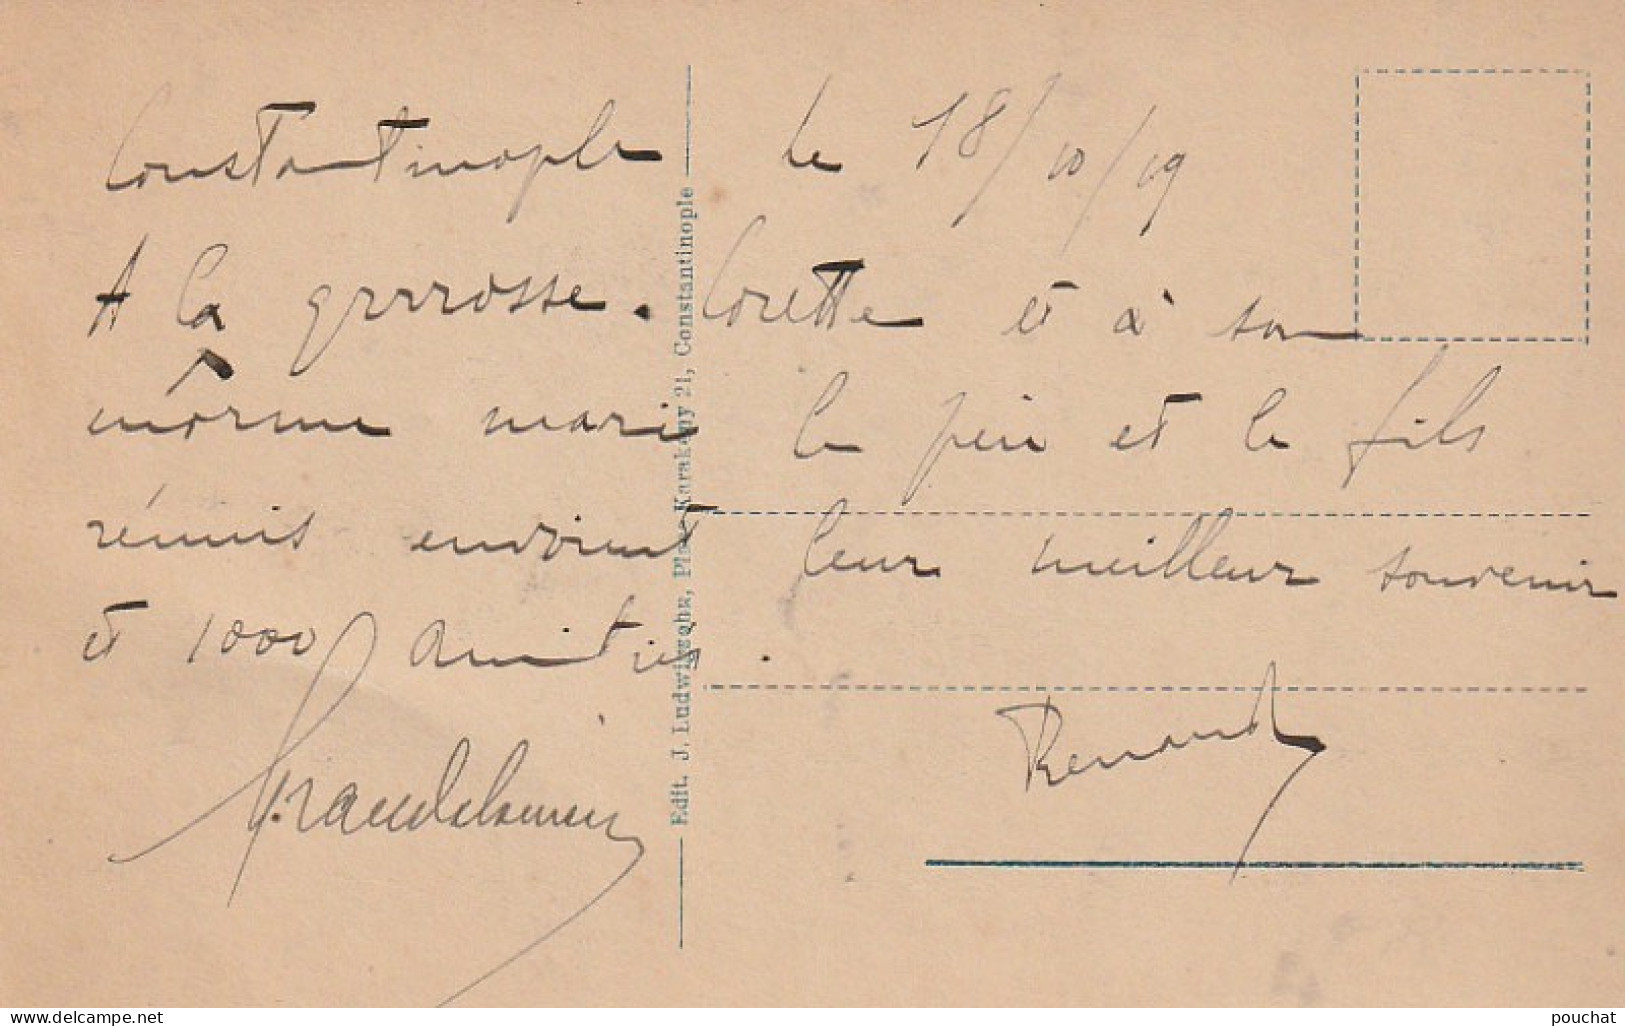 Constantinople le 18/10/19
A la grrrosse. Lorette et à son
môrme mari le père et le fils
réunis envoient leur meilleur souvenir
et 1000 amitiés.
Renaud
Edit. J. Ludwigsohn, Place Karakeuy 21, Constantinople
www.delcampe.net
pouchat